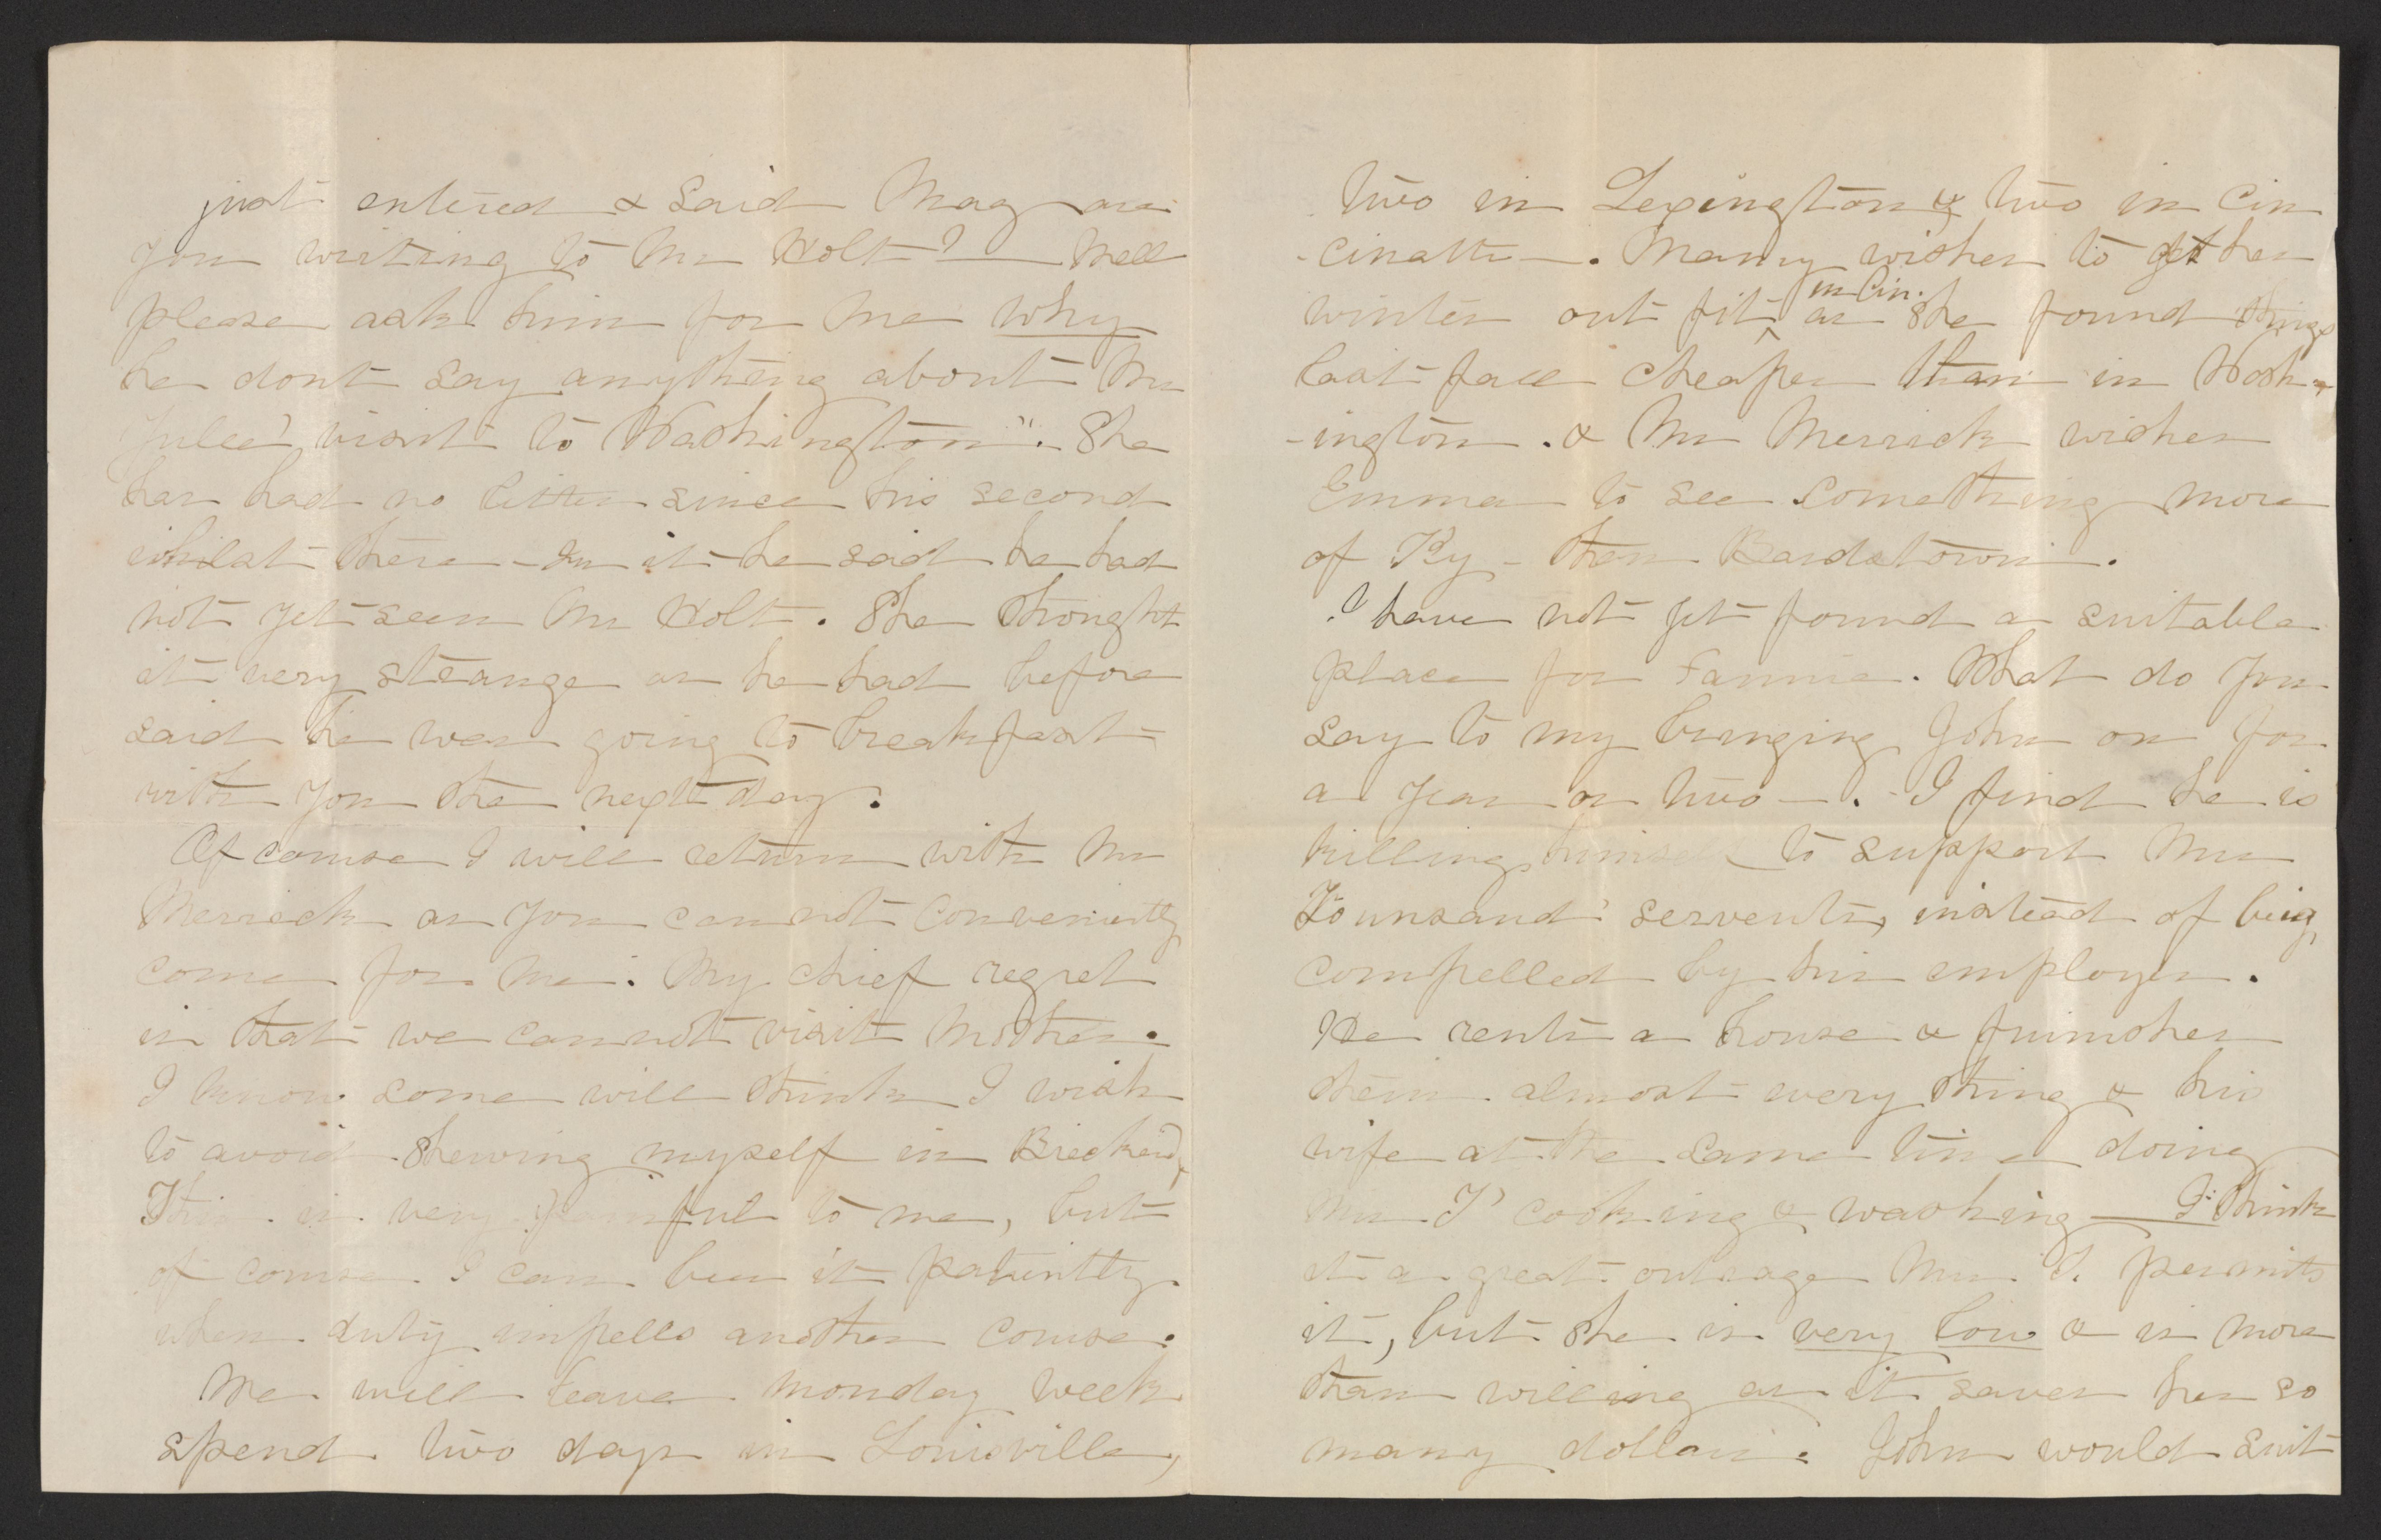 just entered & said Mag are
you writing to Mr Holt? Well
please ask him for me why
he dont say anything about Mr
Yulee' visit to Washington". She
has had no letter since his second
whilst there - In it he said he had
not yet seen Mr Holt. She thought
it very strange as he had before
said he was going to breakfast
with you the next day.
Of course I will return with Mr
Merrick as you cannot conveniently
come for me. My chief regret
is that we cannot visit Mother.
I know some will think I wish
to avoid shewing myself in Breckend,
This is very painful to me, but
of course I can bear it patiently
when duty impells another course.
We will leave monday week
spend two days in Louisville,
two in Lexington & two in Cin
-cinatti-. Mary wishes to get her
winter out fit in Cin. as she found things
last fall cheaper than in Wash-
-ington. & Mr Merrick wishes
Emma to see something more
of Ky- than Bardstown.
I have not yet found a suitable
place for Fannie. What do you
say to my bringing John on for
a year or two-. I find he is
killing himself to support Mrs
Tounsand' servents, instead of being
compelled by his employer.
He rents a house & furnishes
them almost every thing & his
wife at the same time doing
Mrs T' cooking & washing - I think
it a great outrage Mrs. T. permits
it, but she is very low & is more
than willing as it saves her so
many dollars. John would suit